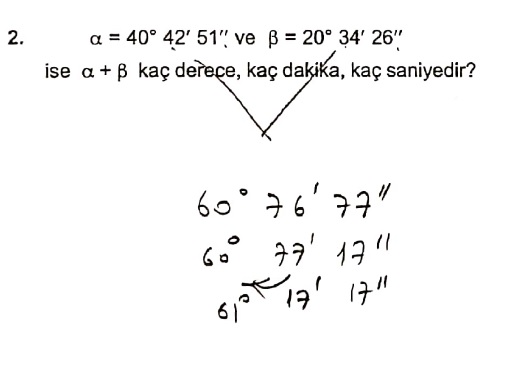 2. α = 40° 42′ 51″ ve β = 20° 34′ 26″
ise α + β kaç derece, kaç dakika, kaç saniyedir?
60° 76′ 77″
60° 77′ 17″
61° 17′ 17″